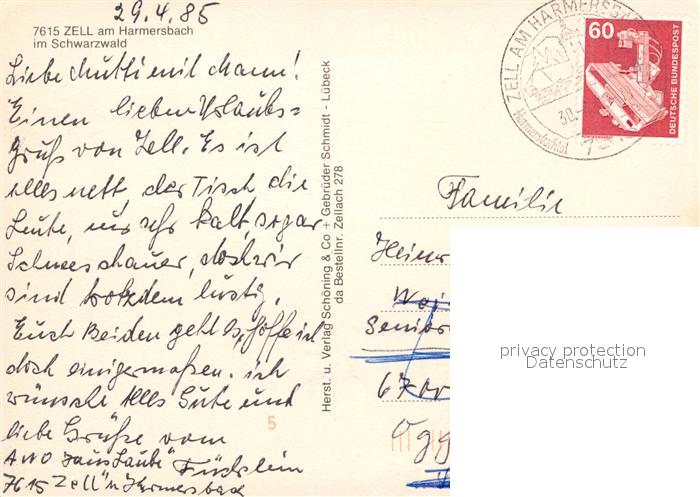 29.4.85
7615 ZELL am Harmersbach
im Schwarzwald
Liebe Mutti mit Mann!
Einen lieben Urlaubs=
gruß von Zell. Es ist
alles nett, der Tisch die
Leute, nur sehr kalt, sogar
Schneeschauer, doch wir
sind trotzdem lustig.
Euch Beiden geht es, hoffe ich
doch einigermaßen. ich
wünsche Alles Gute und
liebe Grüße vom
AWO "Haus Laube"
7615 Zell "a Harmersbach
5
Herst. u. Verlag Schöning & Co + Gebrüder Schmidt - Lübeck
da Bestellnr. Zellach 278
ZELL AM HARMERSB
Harmersbachtal
30.
60
DEUTSCHE BUNDESPOST
Familie
Senior
6700
Ogg
privacy protection
Datenschutz